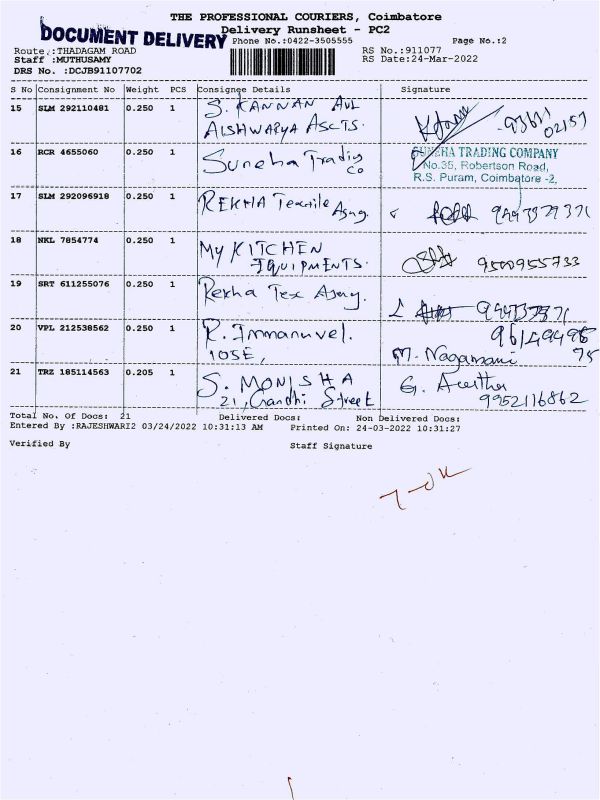 THE PROFESSIONAL COURIERS, Coimbatore
Delivery Runsheet - PC2
DOCUMENT DELIVERY
Phone No.:0422-3505555
Page No.:2
Route.:THADAGAM ROAD
RS No.:911077
Staff :MUTHUSAMY
RS Date:24-Mar-2022
DRS No. :DCJB91107702
S No Consignment No Weight PCS Consignee Details Signature
15 SLM 292110481 0.250 1 S. KANNAN AVL
AISHWARYA ASCTS.
16 RCR 4655060 0.250 1 Suneha Trading
Co
SUNEHA TRADING COMPANY
No.35, Robertson Road,
R.S. Puram, Coimbatore -2,
17 SLM 292096918 0.250 1 REKHA Textile Agng.
18 NKL 7854774 0.250 1 MY KITCHEN
EQUIPMENTS. 9500955733
19 SRT 611255076 0.250 1 Rekha Tex Agng.
20 VPL 212538562 0.250 1 R. Immanuvel.
105E, M. Nagamani
21 TRZ 185114563 0.205 1 S. MONISHA G.
21, Gandhi Street 9952116862
Total No. Of Docs: 21 Delivered Docs: Non Delivered Docs:
Entered By :RAJESHWARI2 03/24/2022 10:31:13 AM Printed On: 24-03-2022 10:31:27
Verified By Staff Signature